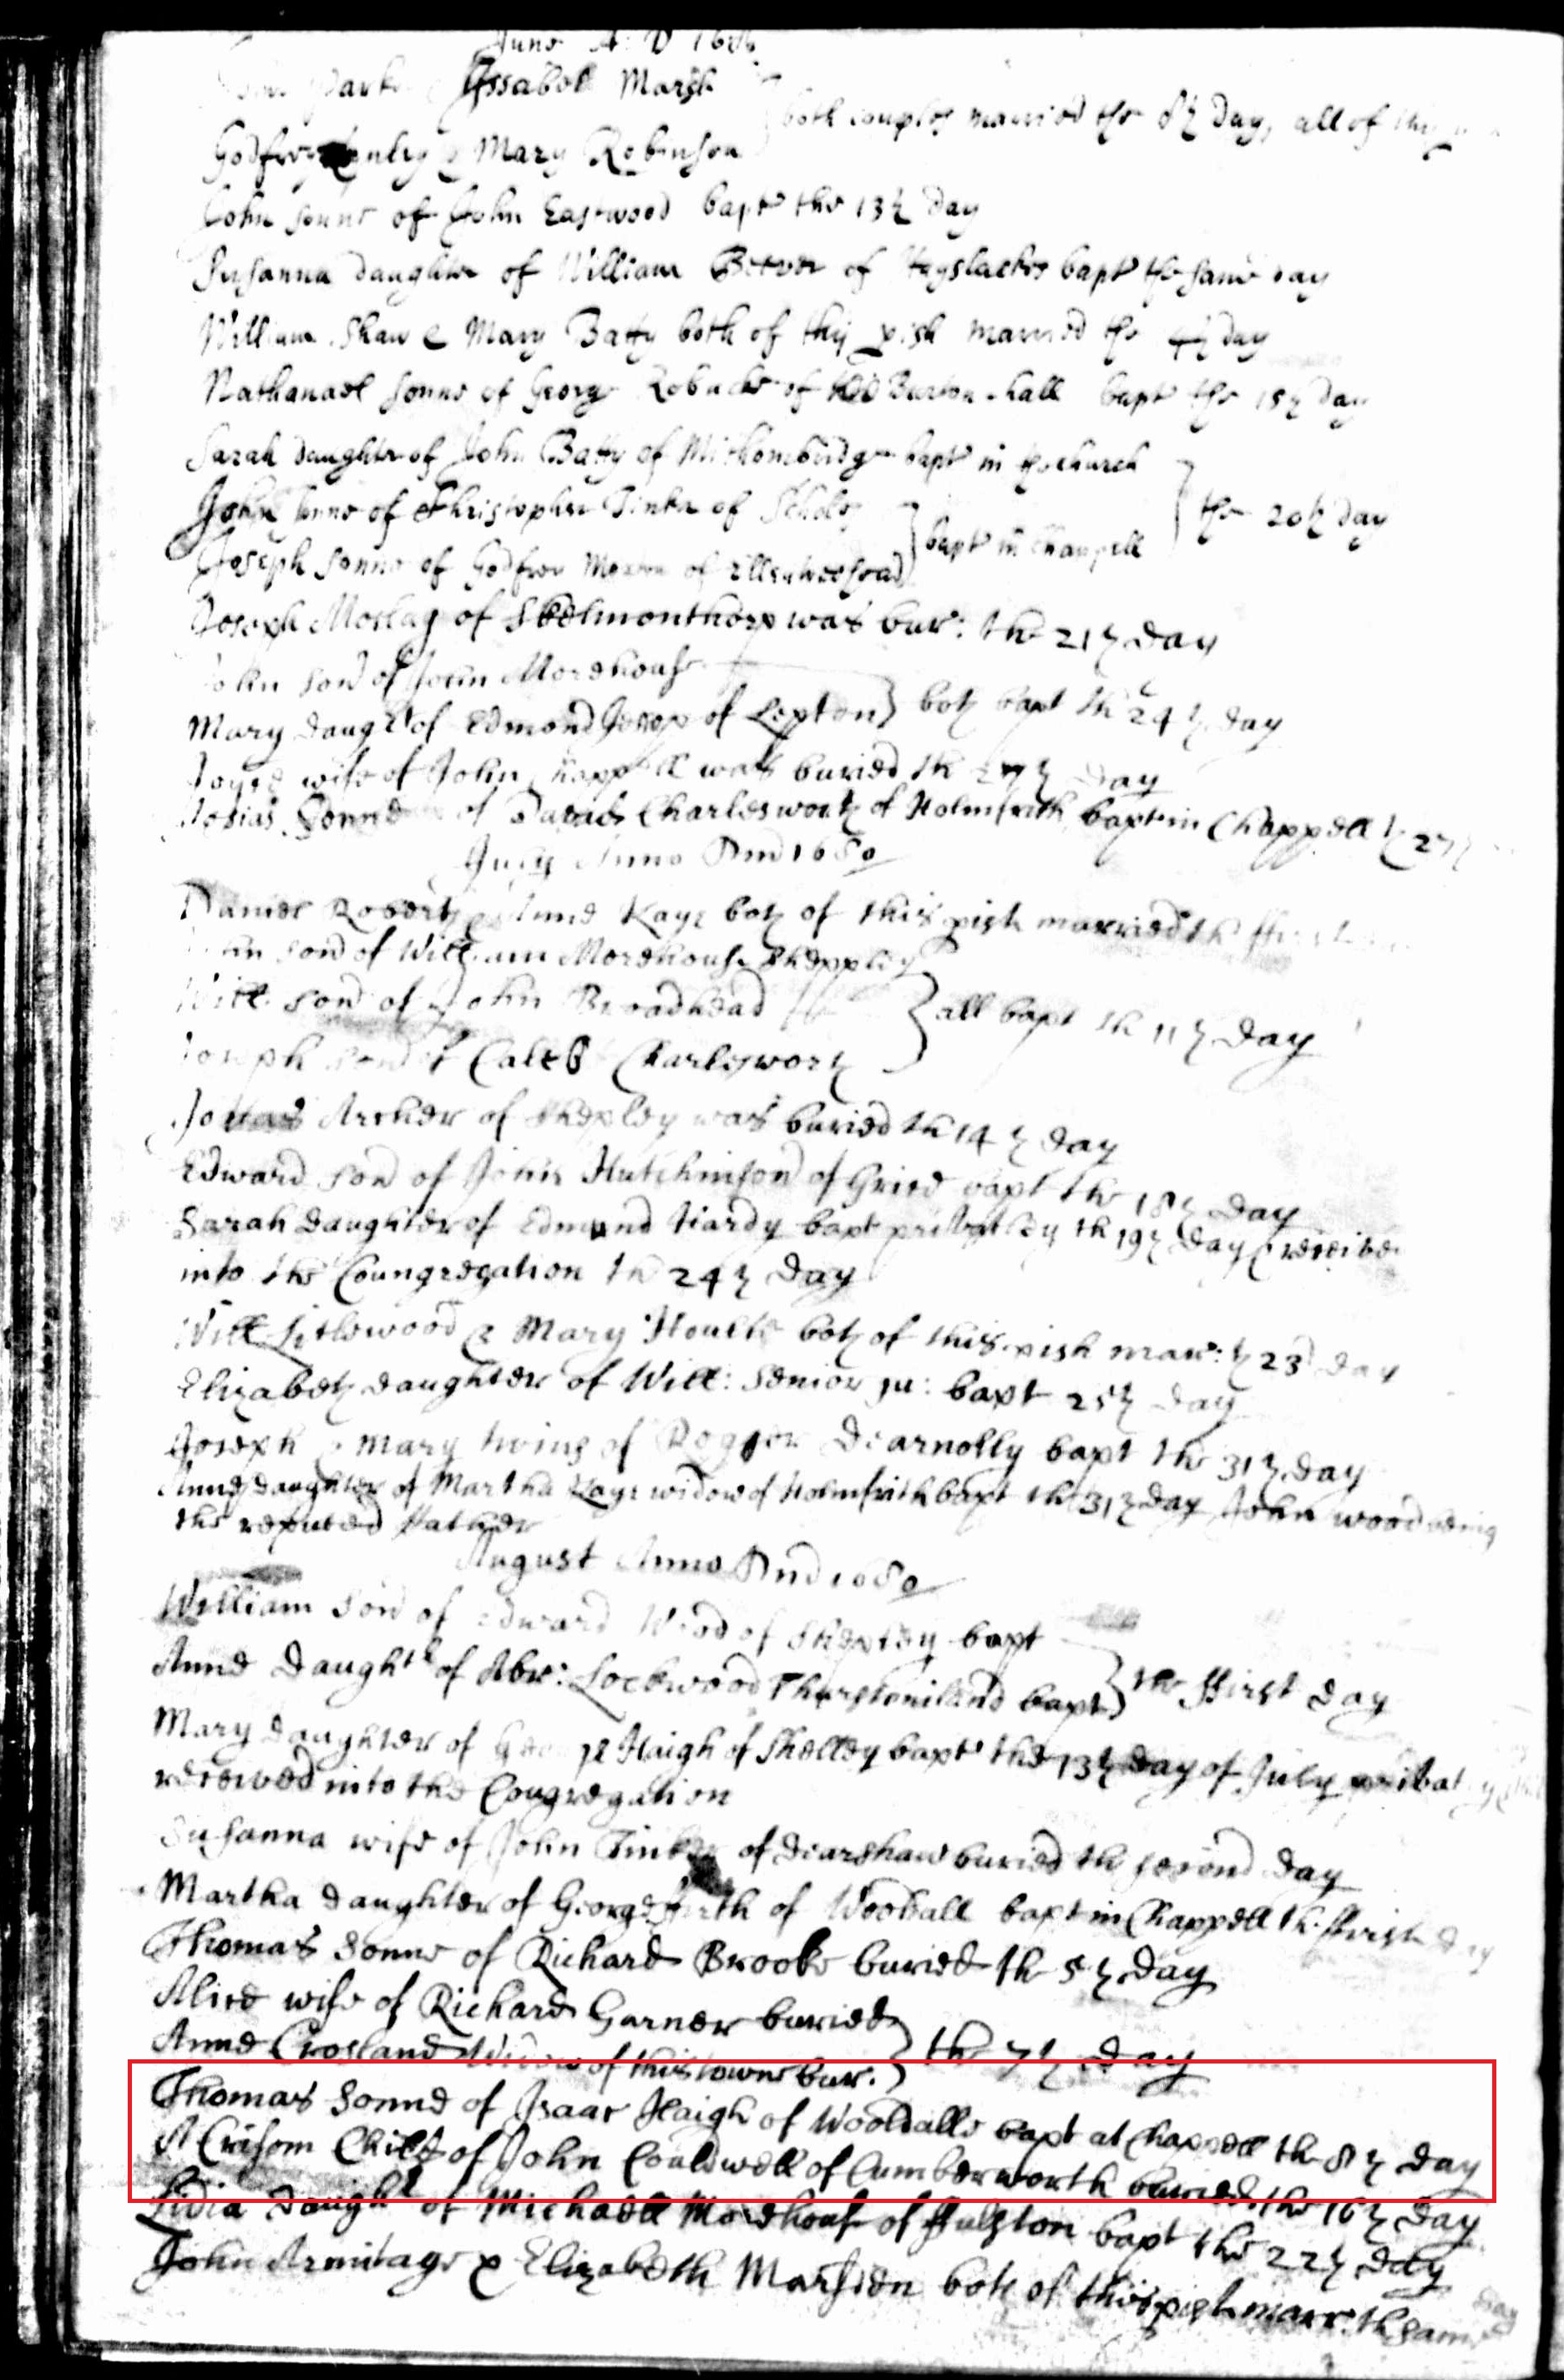 June A: D 1680
Issabell Marsh
Godfrey & Mary Robinson } both couples married the 8th day, all of this
John sonne of John Eastwood bapt the 13th day
Susanna daughter of William Beever of Hayslackes bapt the same day
William Shaw & Mary Batty both of this pish married the day
Nathanael sonne of George Robucke of Burton-hall bapt the 15th day
Sarah daughter of John Batty of Mithombridge bapt in the church
John sonne of Christopher Tinker of Scholes } the 20th day
Joseph sonne of Godfrey of } bapt in Chappell
Joseph Moslay of Skelmonthorp was bur: the 21th day
John son of John Morehouse
Mary daught of Edmond Jessop of Lepton } both bapt th 24th day
Joyce wife of John Chappell was buried th day
Josias Sonne of Charlesworth of Holmfrith bapt in Chappell th 27th
July Anno Dni 1680
Daniel Roberts & Anne Kaye both of this pish married th first
son of William Morehouse Sheppley
Will son of John Broadhead } all bapt th 11th day
Joseph son of Caleb Charlesworth
Jonas Archer of Shepley was buried th 14th day
Edward son of John Hutchinson of Grice bapt the 18th day
Sarah daughter of Edmund Hardy bapt privatly th 19th day & received
into the Coungregation th 24th day
Will Litlewood & Mary Hoult both of this pish mar: th 23 day
Elizabeth daughter of Will: Senior ju: bapt 25th day
Joseph & Mary twins of Rogger Dearnolly bapt the 31th day
Anne daughter of Martha Kaye widow of Holmfrith bapt th 31th day John wood being
the reputed father
August Anno Dni 1680
William son of Edward Wood of Shepley bapt
Anne Daught of Abr: Lockwood Thurstonland bapt } the first day
Mary daughter of George Haigh of Shelley bapt the 13th day of July privatly
received into the Congregation
Susanna wife of John Tinker of Dearshaw buried th second day
Martha daughter of George firth of Wooball bapt in Chappell th first day
Thomas Sonne of Richard Brooke buried th 5th day
Alice wife of Richard Garner buried
Anne Crosland Widow of this towne bur. } the 7th day
Thomas Sonne of Isaac Haigh of Wooldalle bapt at Chappell th 8th day
A Crisom Child of John Couldwell of Cumberworth buried the 16th day
Lidia Daught of Michaell Morehouse of ffulston bapt the 22th day
John Armitage & Elizabeth Marsden both of this pish marr: th same day